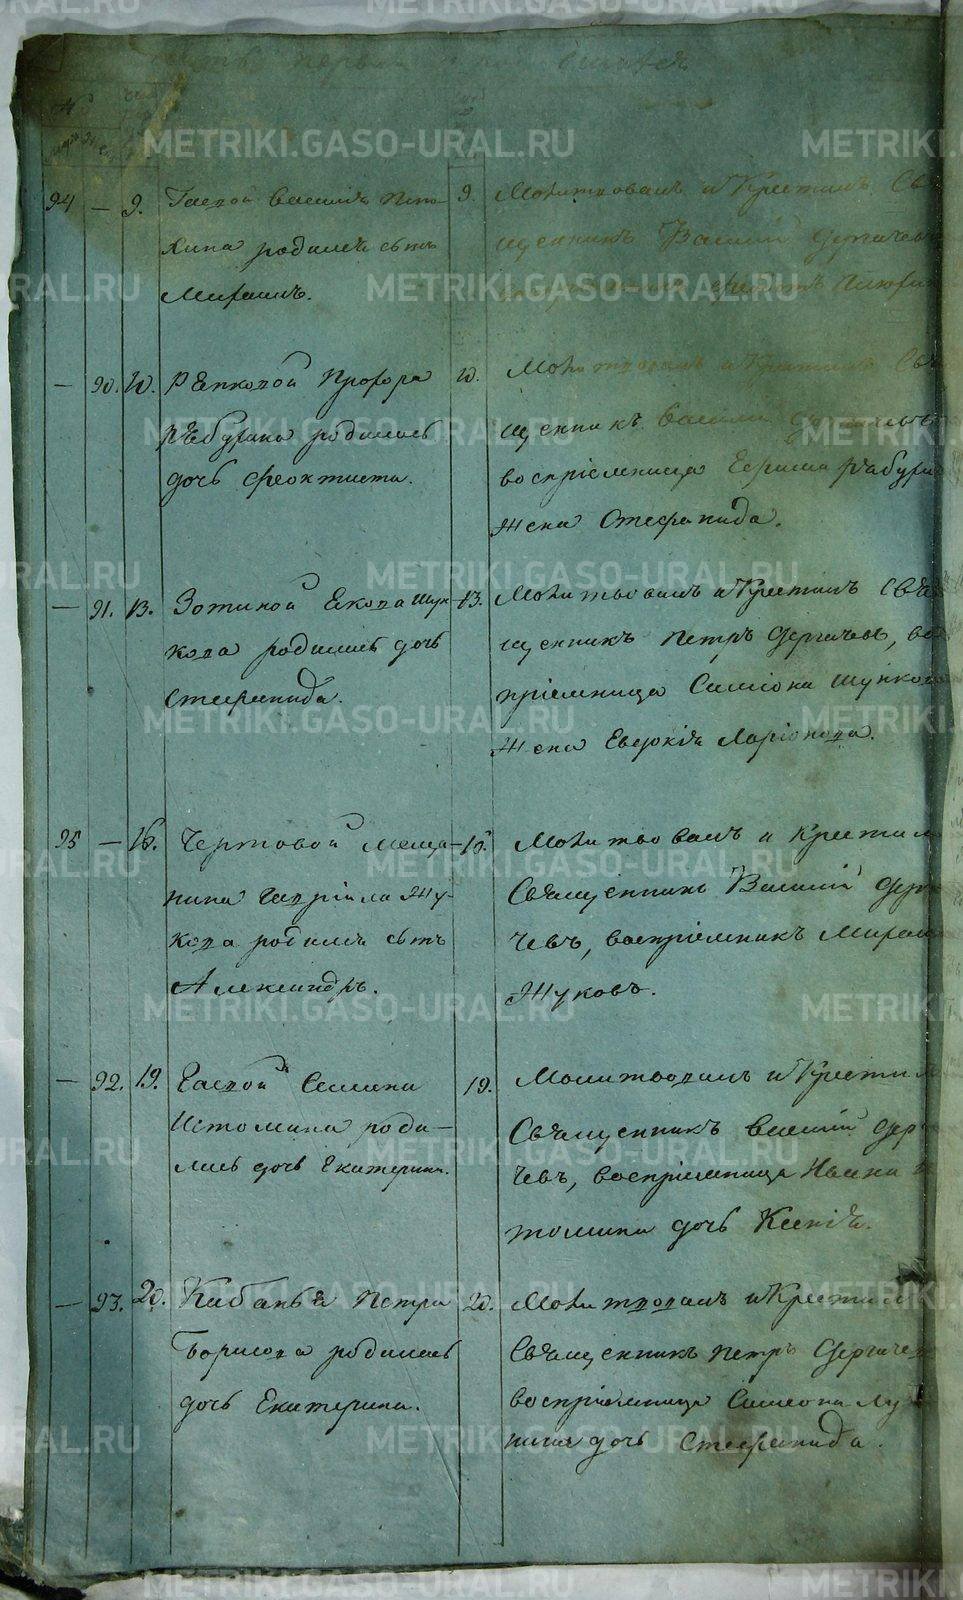 часть первая о родившихся
94 — 9. Гаевой Василия Пено-
хина родился сынъ
Мираонъ.
9. Молитвовалъ и Крестилъ Свя
щенникъ Василий Дергачевъ
— 90. 10. Репковой Прохора
Рябухина родилась
дочь Феоктиста.
10. Молитвовалъ и Крестилъ Свя
щенникъ Василий Дергачевъ
воспріемница
жена Стефанида.
— 91. 13. Зотиной Екова Шун-
кова родилась дочь
Стефанида.
13. Молитвовалъ и Крестилъ Свя
щенникъ Петръ Дергачевъ, во
пріемница Симіона Шунково
Жена Евдокія Ларіонова.
95 — 16. Чертовой Меща-
нина Гавріила Жу-
кова родился сынъ
Александръ.
16. Молитвовалъ и Крестил
Священникъ Василий Дерг
чевъ, воспріемникъ Мираон
Жуковъ.
— 92. 19. Гаевой Семена
Истомина роди-
лась дочь Екатерина.
19. Молитвовалъ и Крестил
Священникъ Василий Дерг
чевъ, воспріемница Ивана И
томина дочь Ксенія.
— 93. 20. Кабанья Петра
Борисова родилась
дочь Екатерина.
20. Молитвовалъ и Крестил
Священникъ Петръ Дергаче
воспріемница Симеона Лу
нина дочь Стефанида.
METRIKI.GASO-URAL.RU